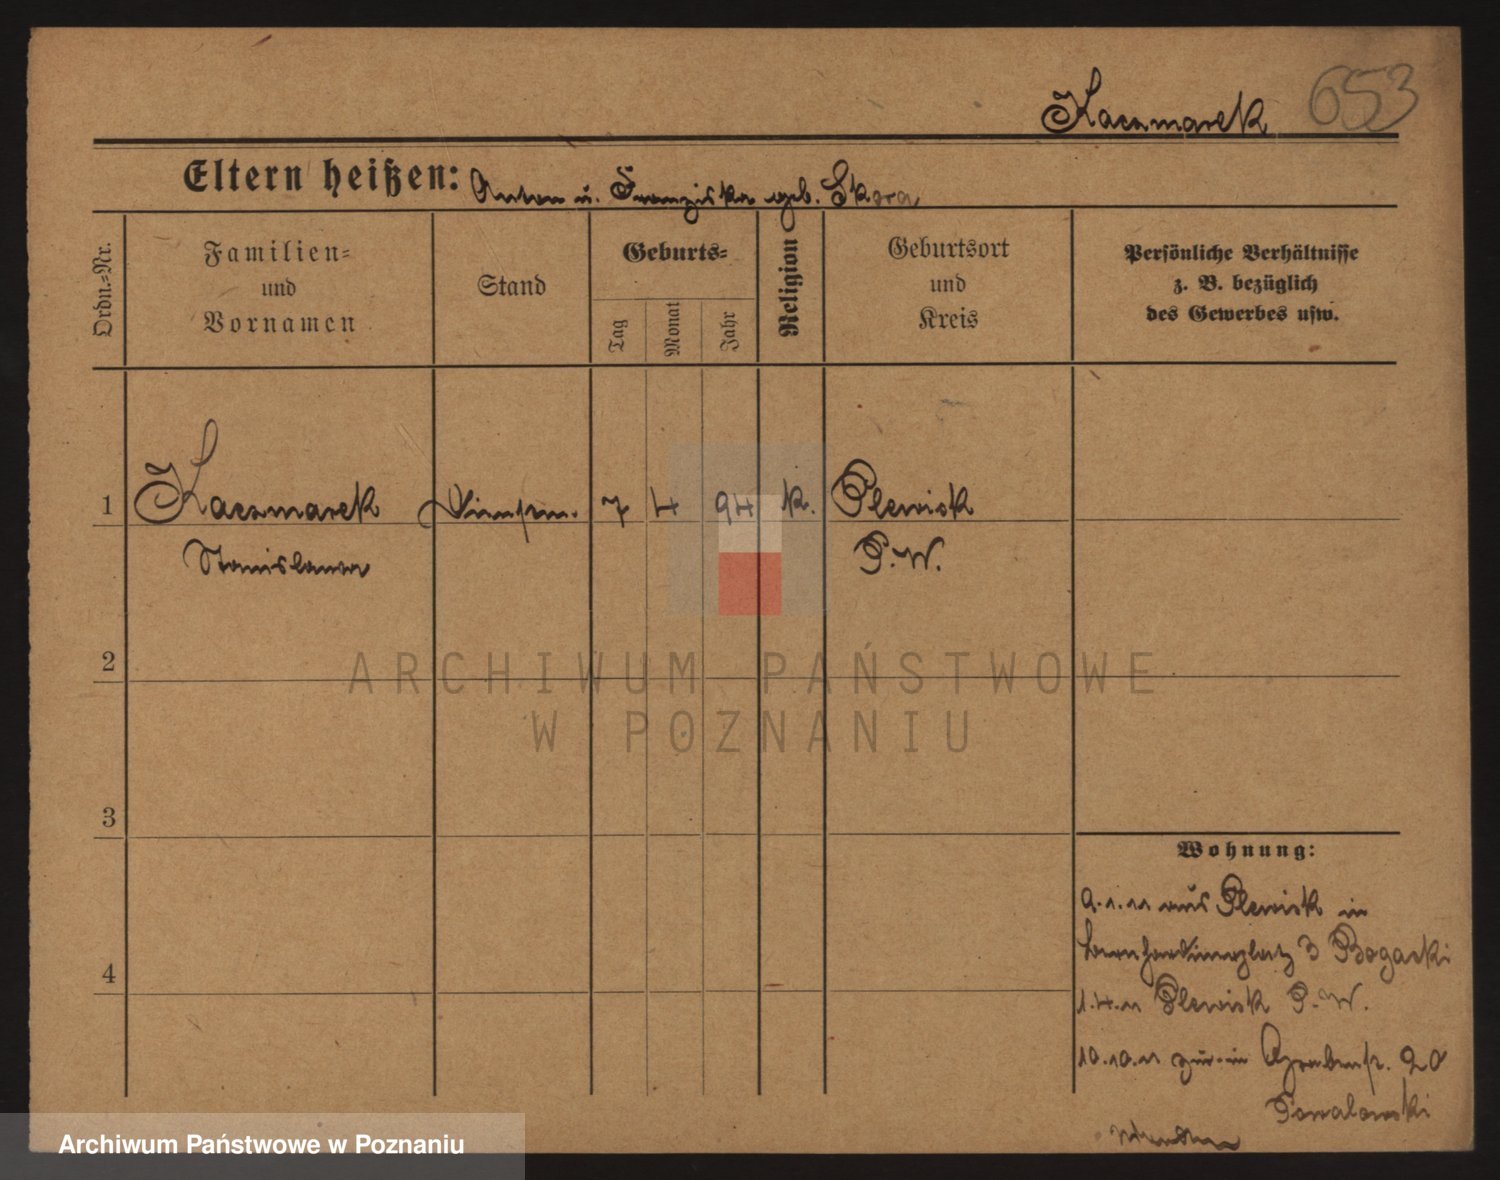 Kaczmarek 653
Eltern heißen: Anton u. Franziska geb. Skora
Ordn.-Nr.
Familien-
und
Vornamen
Stand
Geburts-
Tag
Monat
Jahr
Religion
Geburtsort
und
Kreis
Persönliche Verhältnisse
z. B. bezüglich
des Gewerbes usw.
1 Kaczmarek 7 4 94 k. Plewisk
Stanislawa P. W.
2
3
4
Wohnung:
9.1.11 aus Plewisk in
Bernhardinerplatz 3 Bogacki
1.4.11 Plewisk P. W.
10.10.11 zur. in Grabenstr. 20
Powalowski
ARCHIWUM PAŃSTWOWE
W POZNANIU
Archiwum Państwowe w Poznaniu